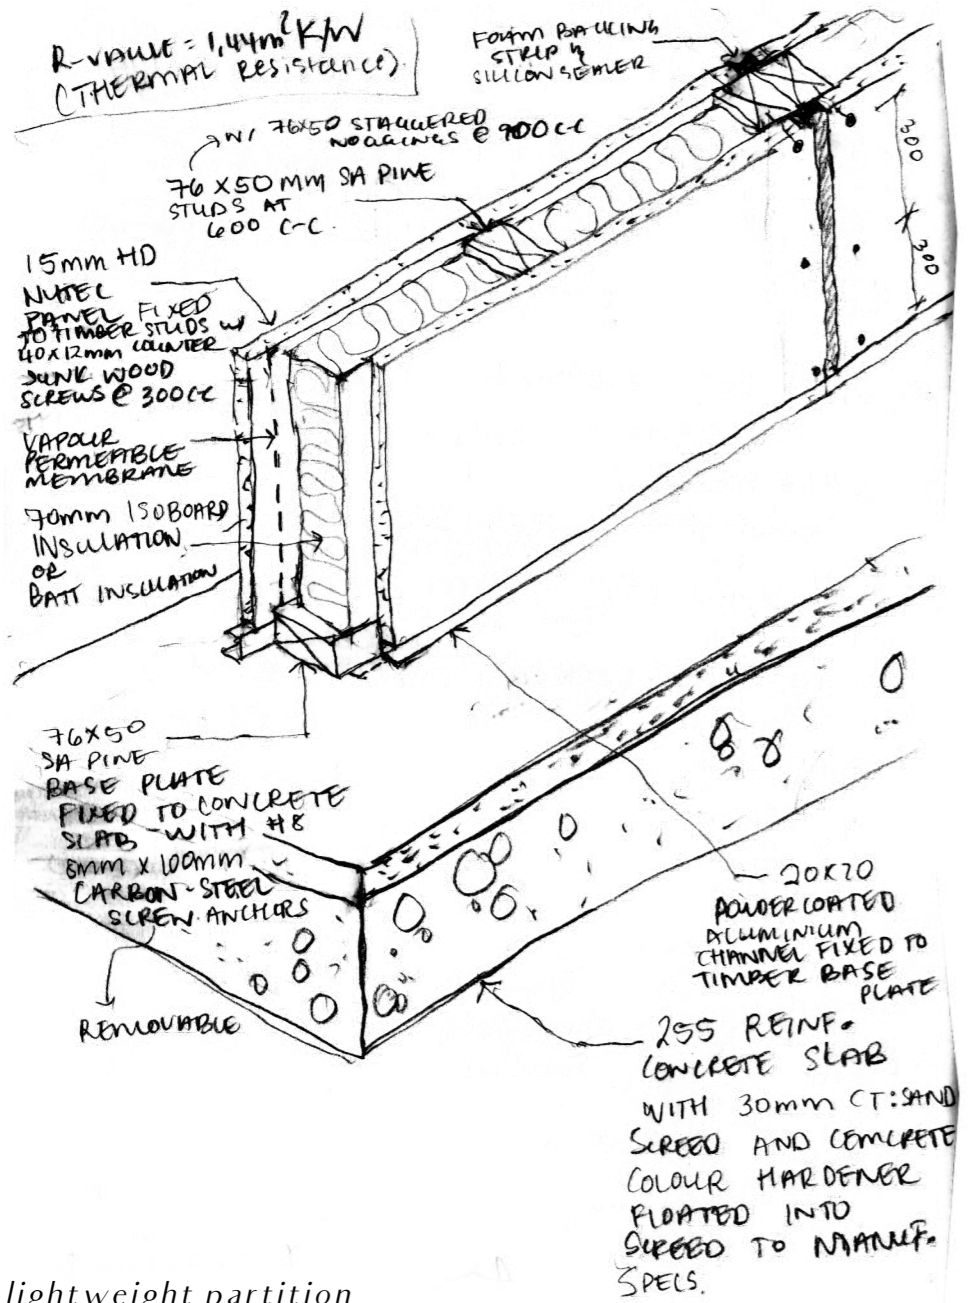 R-VALUE = 1,44m²K/W
(THERMAL Resistance)
FOAM BACKING
STRIP &
SILICON SEALER
W/ 76x50 STAGGERED
NOGGINGS @ 900 c-c
76 x 50 MM SA PINE
STUDS AT
600 C-C.
15mm HD
NUTEC
PANEL FIXED
TO TIMBER STUDS W/
40x12mm COUNTER
SUNK WOOD
SCREWS @ 300cc
300
300
VAPOUR
PERMEABLE
MEMBRANE
70mm ISOBOARD
INSULATION
OR
BATT INSULATION
76x50
SA PINE
BASE PLATE
FIXED TO CONCRETE
SLAB - WITH #8
6mm x 100mm
CARBON-STEEL
SCREW ANCHORS
REMOVABLE
20x20
POWDERCOATED
ALUMINIUM
CHANNEL FIXED TO
TIMBER BASE
PLATE
255 REINF.
CONCRETE SLAB
WITH 30mm CT:SAND
SCREED AND CEMCRETE
COLOUR HARDENER
FLOATED INTO
SCREED TO MANUF.
SPECS.
lightweight partition